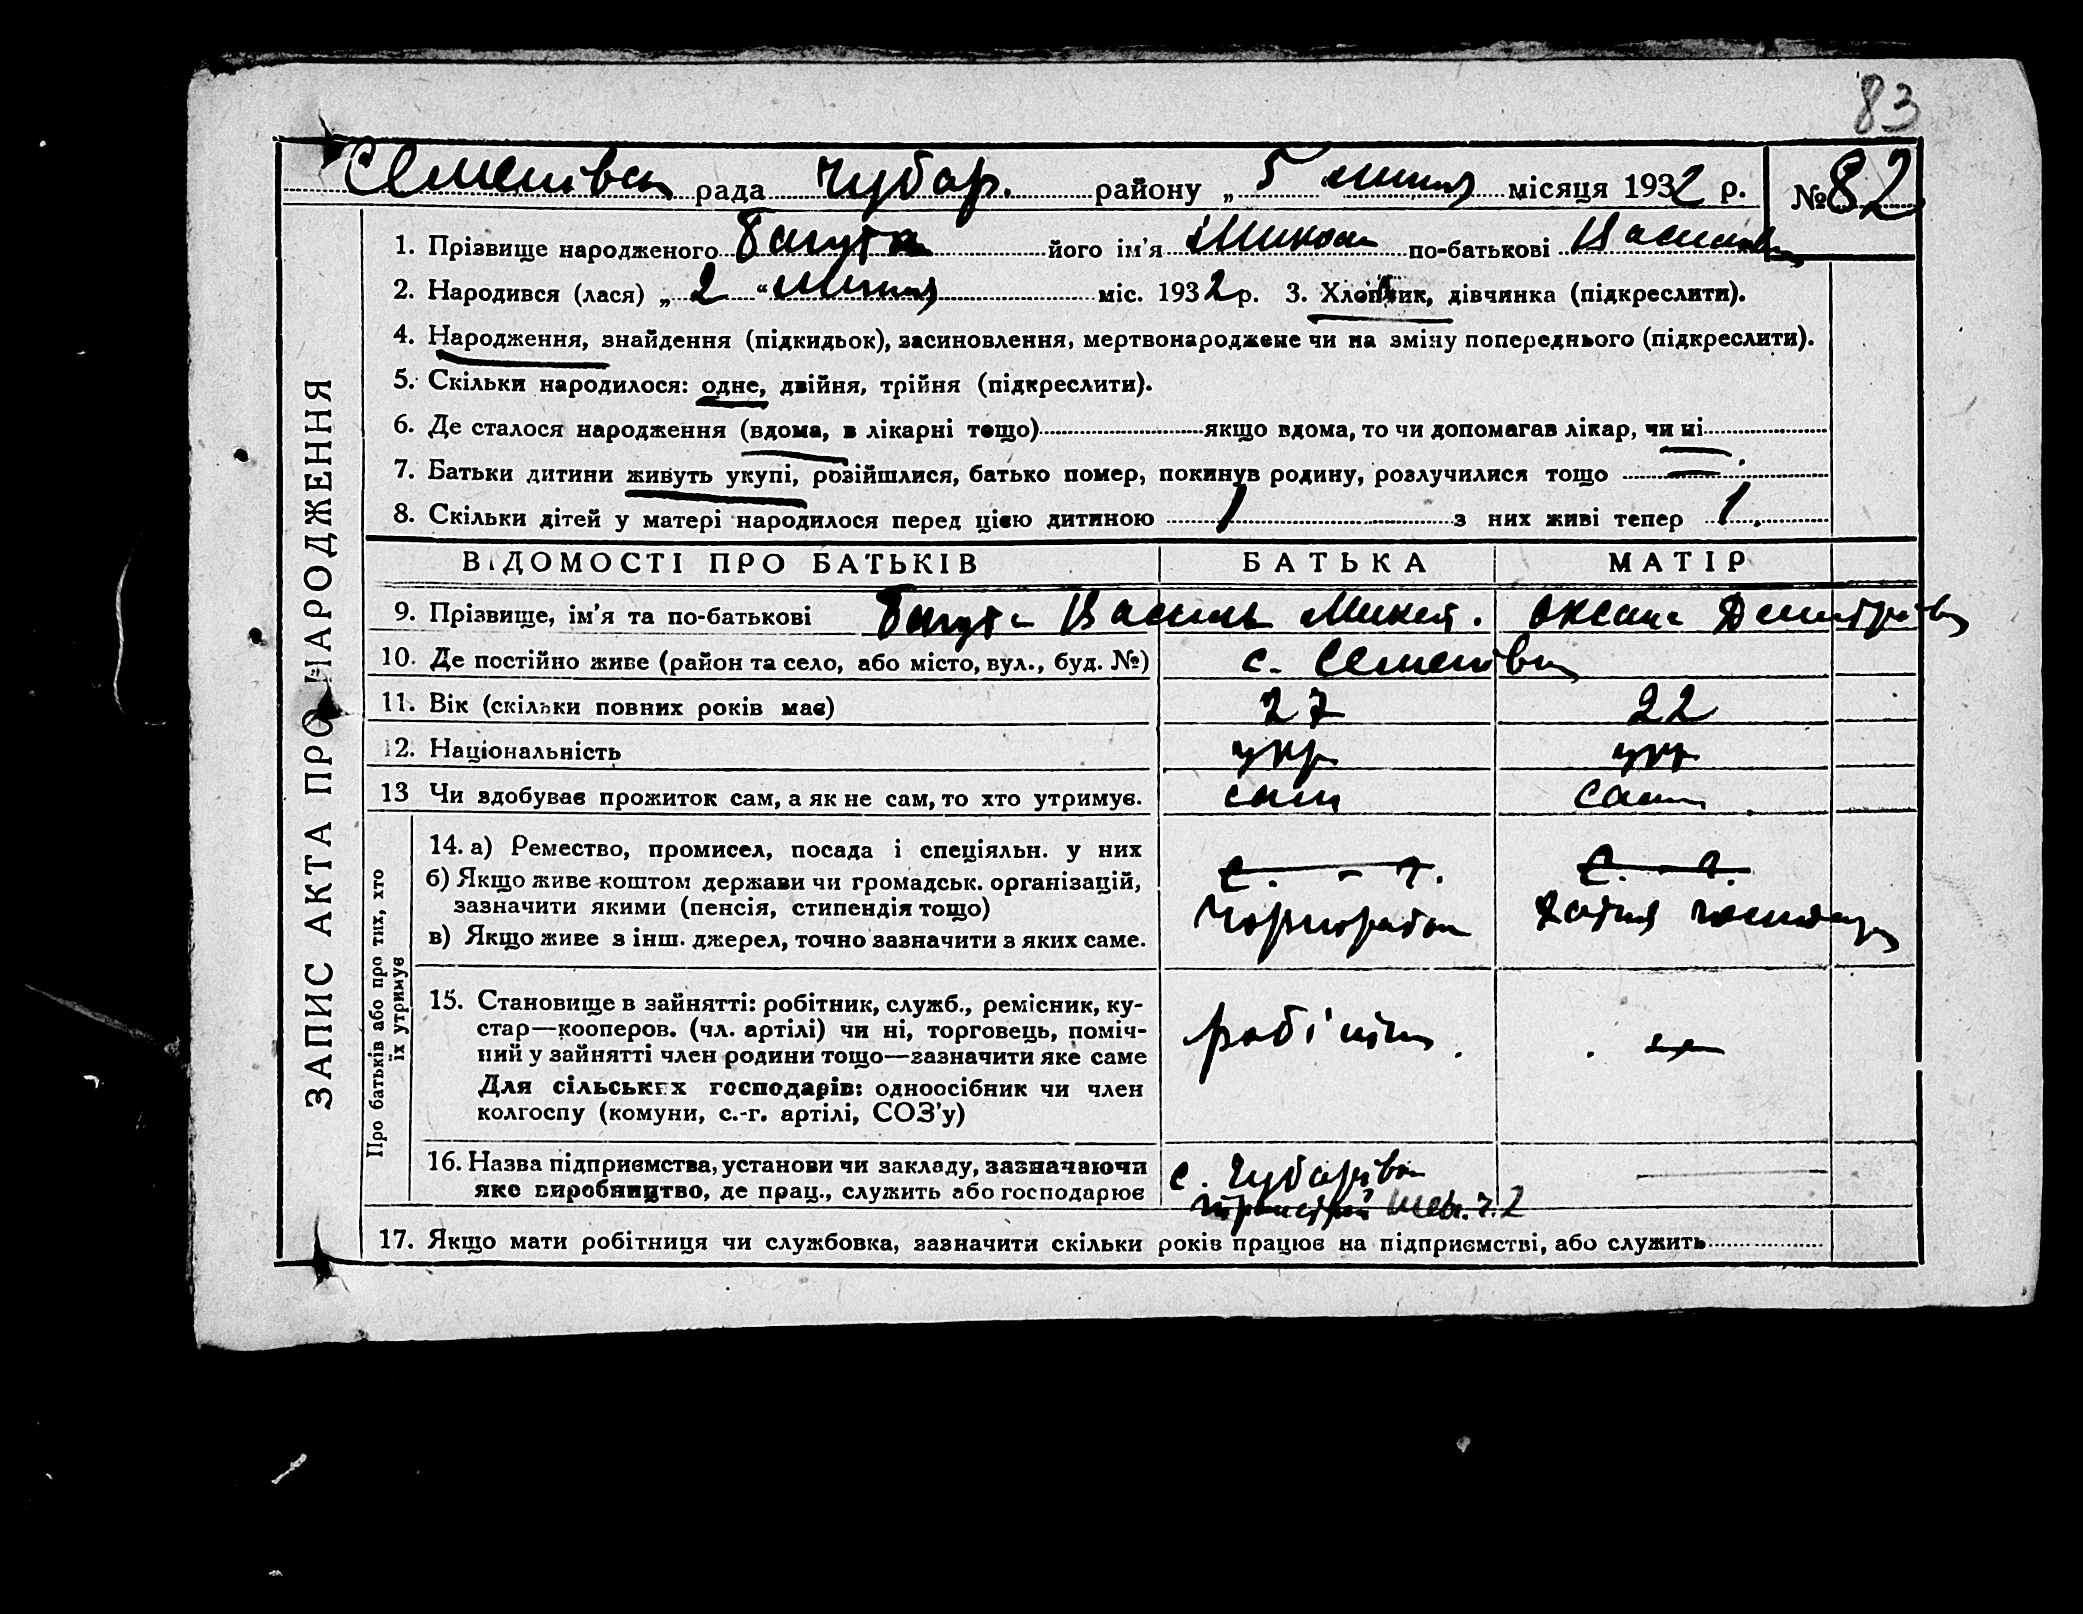 83
Семенівськ рада Чубар. району „ 5 липня місяця 1932 р. № 82
1. Прізвище народженого його ім'я Микола по-батькові
2. Народився (лася) „ 2 “ липня міс. 1932 р. 3. Хлопчик, дівчинка (підкреслити).
4. Народження, знайдення (підкидьок), засиновлення, мертвонароджене чи на зміну попереднього (підкреслити).
5. Скільки народилося: одне, двійня, трійня (підкреслити).
6. Де сталося народження (вдома, в лікарні тощо) якщо вдома, то чи допомагав лікар, чи ні
7. Батьки дитини живуть укупі, розійшлися, батько помер, покинув родину, розлучилися тощо —
8. Скільки дітей у матері народилося перед цією дитиною 1 з них живі тепер 1.
ЗАПИС АКТА ПРО НАРОДЖЕННЯ
ВІДОМОСТІ ПРО БАТЬКІВ БАТЬКА МАТІР
9. Прізвище, ім'я та по-батькові Василь Микит. Оксана Дмитрівн
10. Де постійно живе (район та село, або місто, вул., буд. №) с. Семенівка
11. Вік (скільки повних років має) 27 22
12. Національність укр укр
13 Чи здобуває прожиток сам, а як не сам, то хто утримує. сам сама
Про батьків або про тих, хто
їх утримує
14. а) Ремество, промисел, посада і спеціяльн. у них
б) Якщо живе коштом держави чи громадськ. організацій,
зазначити якими (пенсія, стипендія тощо)
в) Якщо живе з інш. джерел, точно зазначити з яких саме.
с. - г. с. - г.
Чорнороб
15. Становище в зайнятті: робітник, служб., ремісник, ку-
стар—кооперов. (чл. артілі) чи ні, торговець, поміч-
ний у зайнятті член родини тощо—зазначити яке саме
Для сільських господарів: одноосібник чи член
колгоспу (комуни, с.-г. артілі, СОЗ'у)
робітн.
16. Назва підприємства, установи чи закладу, зазначаючи
яке виробництво, де прац., служить або господарює
с. Чубарівка
17. Якщо мати робітниця чи службовка, зазначити скільки років працює на підприємстві, або служить